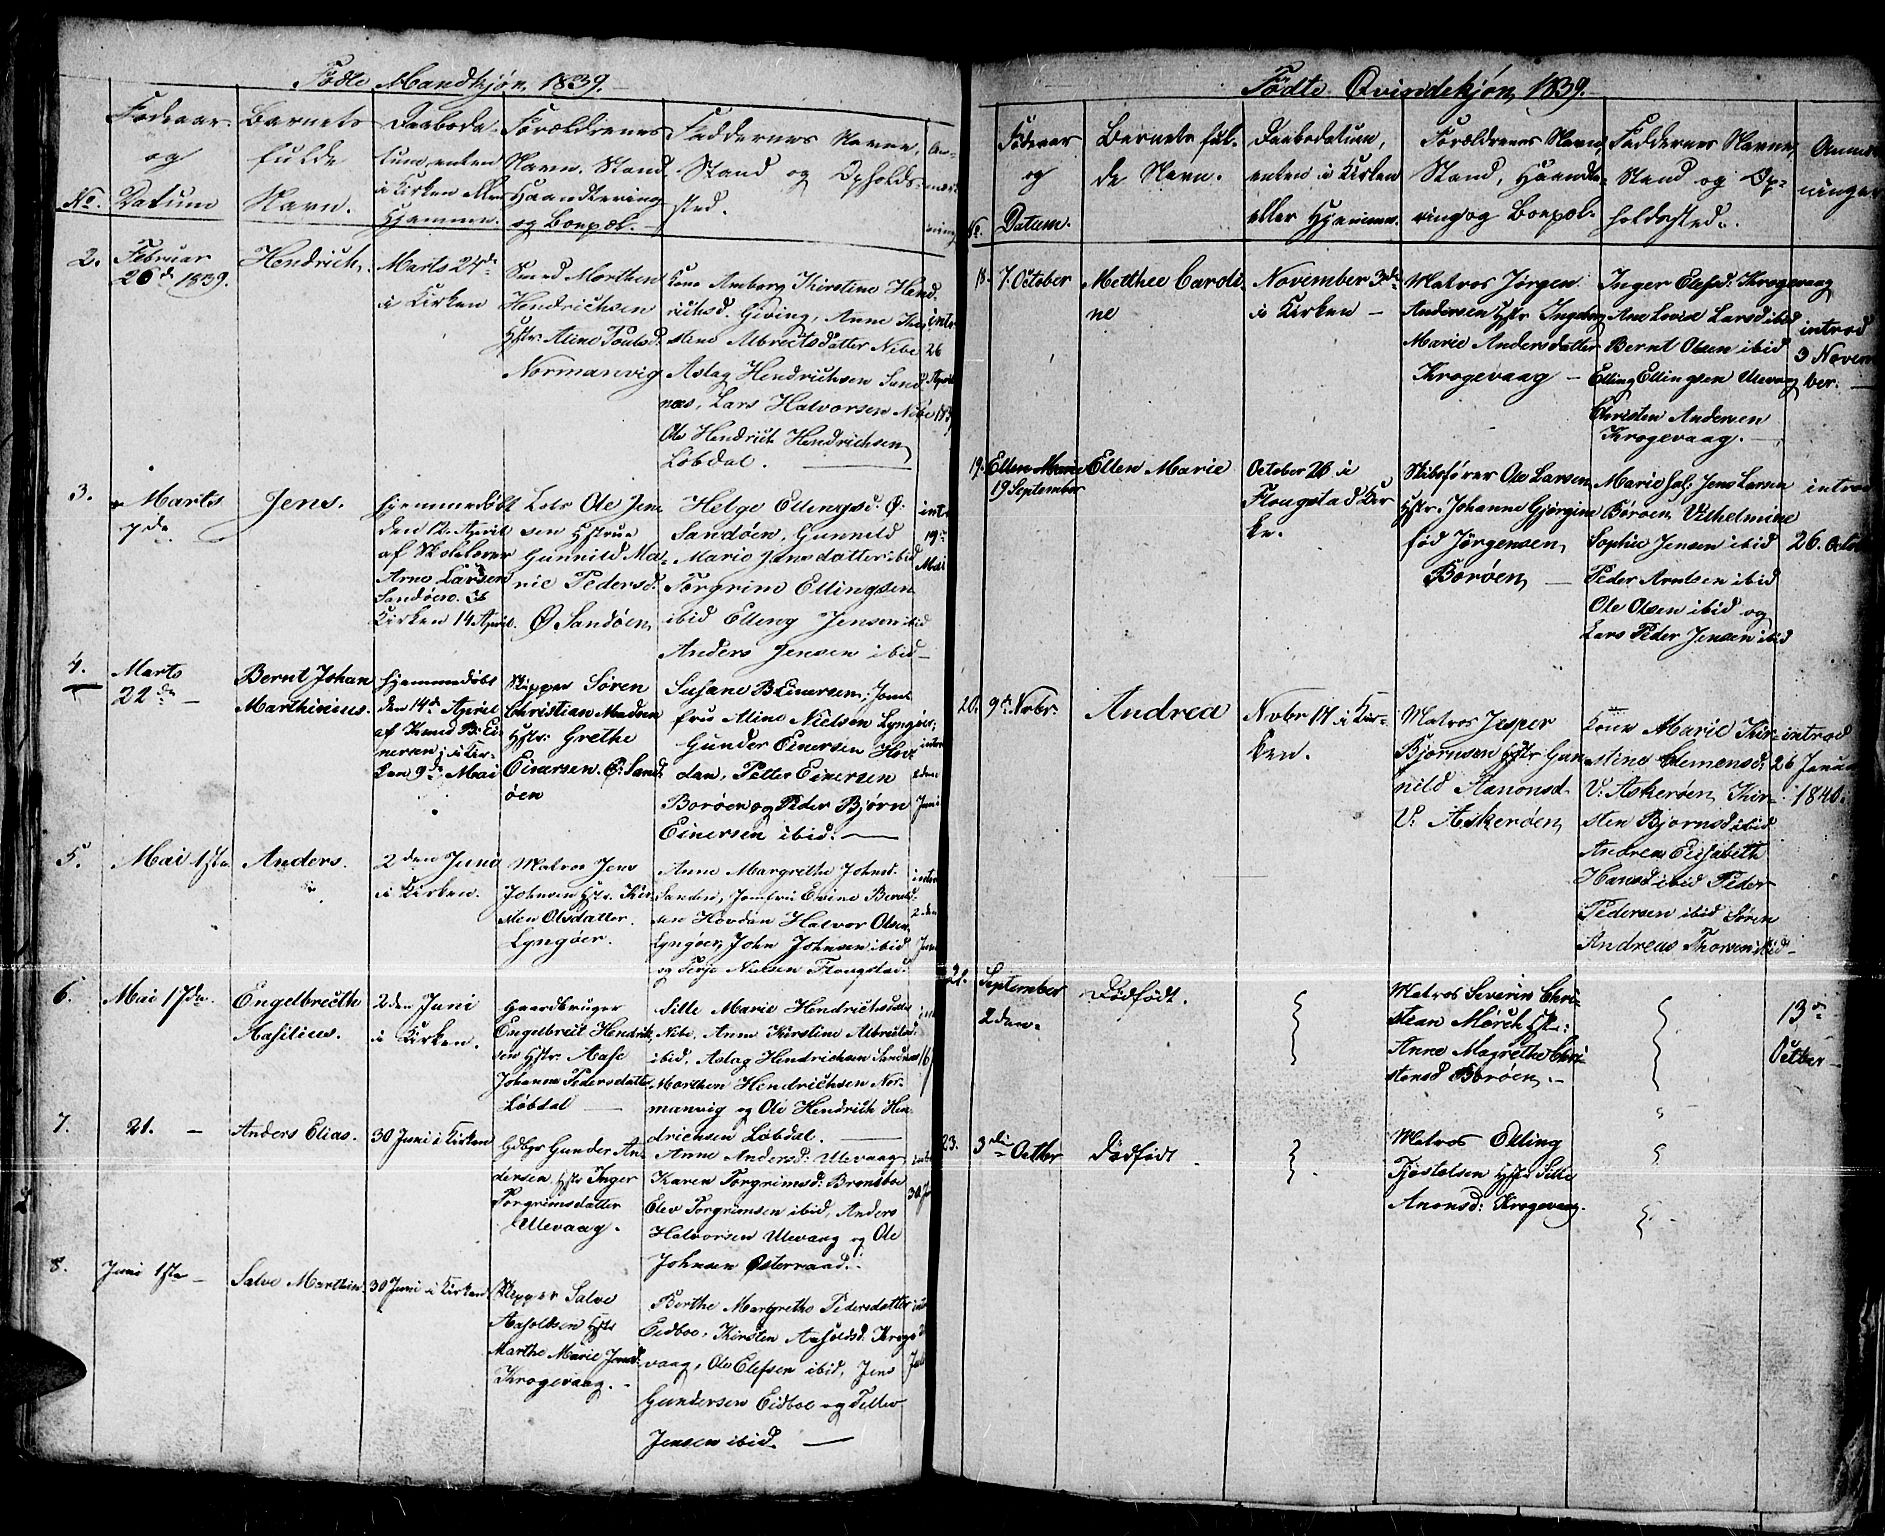 Fødte Mandkjøn 1839.
Fødeaar og Datum
Barnets fulde Navn.
Daabsdatum, enten i Kirken eller Hjemme.
Forældrenes Navn, Stand, Haandtering og Bopæl.
Faddernes Navne, Stand og Opholdssted.
No.
2.
Februar
26de 1839.
Hendrich.
Marts 24de
i Kirken
Smed Morthen
Hendrichsen
Hstr: Aline Poulsd.
Normanvig
Kone Amborg Kirstine Hend-
richsd. Giving, Anne Kir-
stine Albretsdatter Nibe
Aslag Hendrichsen Sand-
næs, Lars Halvorsen Nibe
Ole Hendrich Hendrichsen
Løbdal.
intr
26
April
1839
3.
Marts
7de
Jens.
hjemmedøbt
den 12. April
af Skolelærer
Arne Larsen
Sandøen. i
Kirken 14 April.
Lods Ole Jen-
sen Hstrue
Gunnild Ma-
rie Pedersd.
Ø Sandøen
Helge Ellengsd: Ø.
Sandøen, Gunnild
Marie Jensdatter ibid
Torgrim Ellingsen
ibid Elling Jensen ibid
Anders Jensen ibid
intr
19de
Mai
4.
Marts
22de
Bernt Johan
Marthinius.
hjemmedøbt
den 14de April
af Knud B. Ei-
nersen; i Kir-
ken 9de Mai
Skipper Søren
Christian Madsen
Hstr: Grethe
Einersen. Ø: Sand-
øen
Susane B Einersen, Jom-
fru Aline Nielsen Lyngør,
Gunder Einersen Hov-
dan, Petter Einersen
Borøen og Peder Bjørn
Einersen ibid.
intro
2den
Juni
5.
Mai 1ste
Anders.
2den Juni
i Kirken.
Matros Jens
Johnsen Hstr. Kir-
sten Olsdatter.
Lyngøer.
Anne Margrethe Johnsd:
Sanden, Jomfru Evine Berent-
sen Hovdan Halvor Olsen
Lyngøer, John Johnsen ibid
og Terje Nielsen Flougstad.
intr
2den
Juni
6.
Mai 17de.
Engelbreth
Aasilius.
2den Juni
i Kirken.
Gaardbruger
Engelbret Hendrik-
sen Hstr. Aase
Johanne Pedersdatter
Løbdal
Sille Marie Hendrichsdatter
Nibe, Anne Kirstine Albretsd:
ibid, Aslag Hendrichsen Sandnæs
Morthen Hendrichsen Nor-
manvig og Ole Hendrich Hen-
drichsen Løbdal.
7.
21.
Anders Elias.
30 Juni i Kirken
Gdbgr Gunder An-
dersen Hstr Inger
Torgrimsdatter
Ullevaag.
Anne Andersd: Ullevaag
Karen Torgrimsd: Brønsboe
Elev Torgrimsen ibid, Anders
Halvorsen Ulevaag og Ole
Johnsen Østeraad.
8.
Juni 1ste
Salve Marthin.
30 Juni i Kirken
Skipper Salve
Aasolksen Hstr
Marthe Marie Jensd.
Krogevaag.
Berthe Margrethe Pedersdatter
Eidboe, Kirsten Aasoldsd: Kroge-
vaag, Ole Elefsen ibid, Jens
Gundersen Eidboe og Peller
Jensen ibid.
Fødte Qvindekjøn, 1839.
No.
Fødeaar og Datum.
Barnets ful-
de Navn.
Daabsdatum,
enten i Kirken
eller Hjemme.
Forældrenes Navn,
Stand, Haandte-
ring og Bopæl.
Faddernes Navne,
Stand og Op-
holdssted.
Anmærk-
ninger
18.
7. October
Metthee Caroli-
ne
November 3de
i Kirken
Matros Jørgen
Andersen Hstr Ingeborg
Marie Andersdatter
Krogevaag
Inger Elefsd: Krogevaag
Ane Lovise Larsd ibid
Bernt Olsen ibid
Elling Ellingsen Ulevaag
Christen Andersen
Krogevaag.
introd
3 Novem-
ber.
19.
Ellen Marie
19 September
Ellen Marie
October 26 i
Flougstad Kir-
ke.
Skibsfører Ole Larsen
Hstr. Johanne Gjørgine
fød Jørgensen,
Borøen
Marie Jens Larsen
Borøen, Vilhelmine
Sophie Jensen ibid
Peder Arntsen ibid
Ole Olsen ibid og
Lars Peder Jensen ibid
introd
26. Octob
20.
9de Nvbr:
Andrea
Nvbr 17 i Kir-
ken.
Matros Jesper
Bjørnsen Hstr Gun-
nild Aanonsd
V: Askerøen
Kone Marie Kir-
stine Clemensd:
V: Askerøen, Kir-
sten Bjørnsd ibid
Andrea Elisabeth
Hansd ibid Peder
Pedersen ibid Søren
Andreas Thorsen ibid
introd
26 Januar
1840.
22.
September
2den.
Dødfødt.
Matros Severin Chri-
stian Mørch Hstr:
Anne Magrethe Chri-
stensd Borøen.
13de
Octber
23.
3die Octber
Dødfødt
Matros Elling
Tjøstelsen Hstr Sille
Anonsd: Krogevaag.